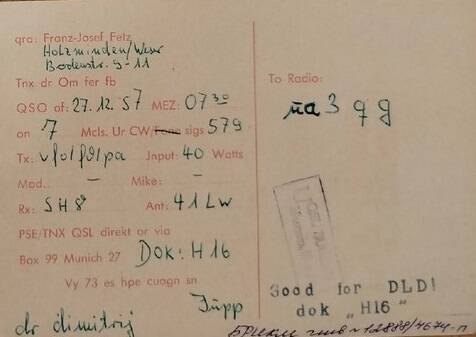 qra: Franz-Josef Felz
Holzminden/Weser
Bodenstr. 9-11
Tnx dr Om fer fb
QSO of: 27.12.57 MEZ: 07³⁰
on 7 Mcls. Ur CW/Fone sigs 579
Tx: vfo/fd/pa Jnput: 40 Watts
Mod.: - Mike: -
Rx: SH8 Ant: 41 LW
PSE/TNX QSL direkt or via
Box 99 Munich 27 DOK: H16
Vy 73 es hpe cuagn sn
Jupp
dr dimitrij
To Radio:
ua3qg
Good for DLD!
dok „H16"